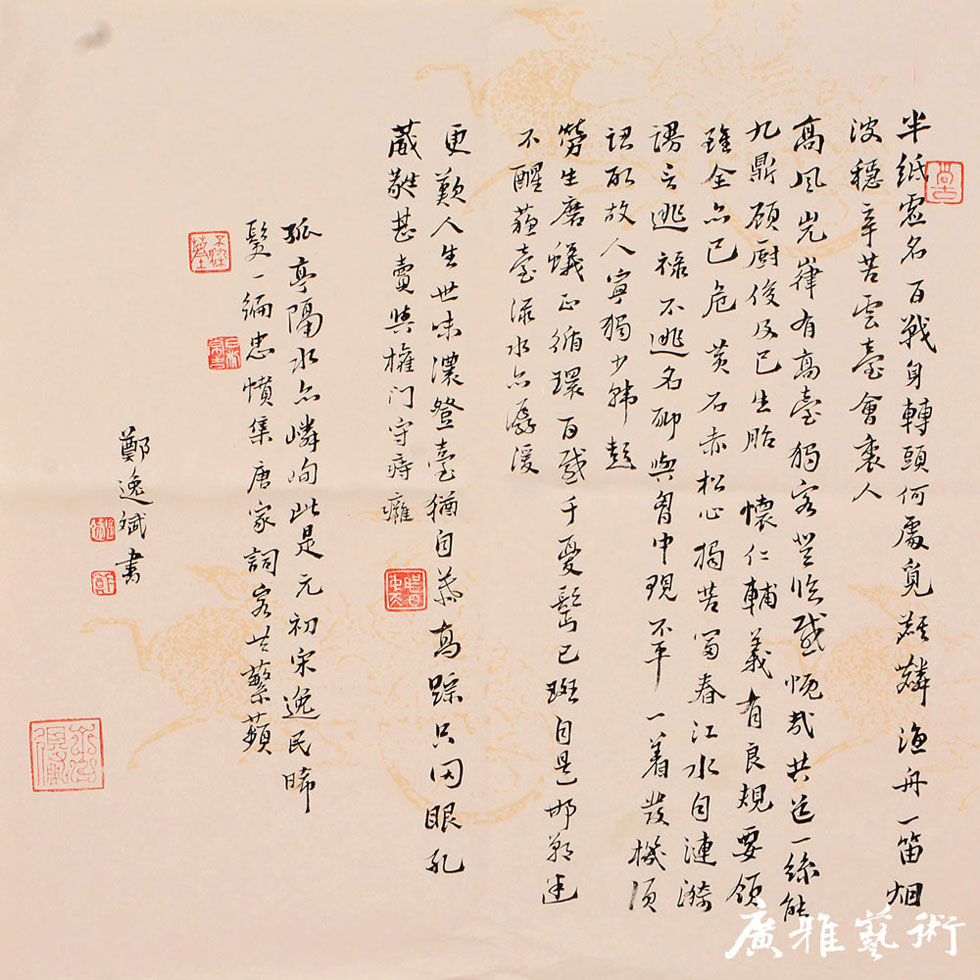 半紙虛名百戰身轉頭何處覓麒麟漁舟一笛烟
波穩辛苦雲臺會裏人
高風兀嵂有高臺獨客登臨感慨哉共道一絲能
九鼎顧厨俊及已生胎　懷仁輔義有良規要領
雖全亦已危黃石赤松心獨苦富春江水自漣漪
謗言逃祿不逃名聊與胷中現不平一着發機須
認取故人寧獨少韓彭
勞生磨蟻正循環百感千憂鬢已斑自是邯鄲迷
不醒蘇臺淥水亦潺湲
更歎人生世味濃登臺猶自慕高踪只因眼孔
蔵甚賣與權門守痔癰
孤亭隔水亦嶙峋此是元初宋逸民晞
髮一編忠憤集唐家詞客共蘩蘋
鄭逸斌書
廣雅藝術